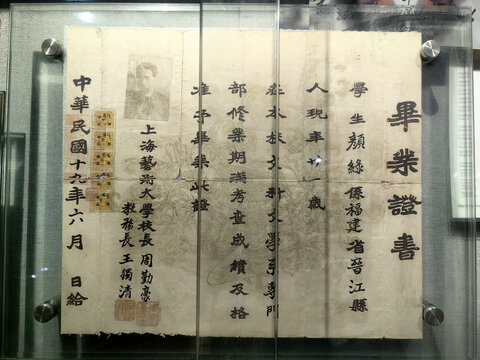 畢業證書
學生顏綠係福建省晉江縣
人現年廿一歲
在本校文科文學系專門
部修業期滿考查成績及格
准予畢業此證
上海藝術大學校長周勤豪
教務長王獨清
中華民國十九年六月 日給